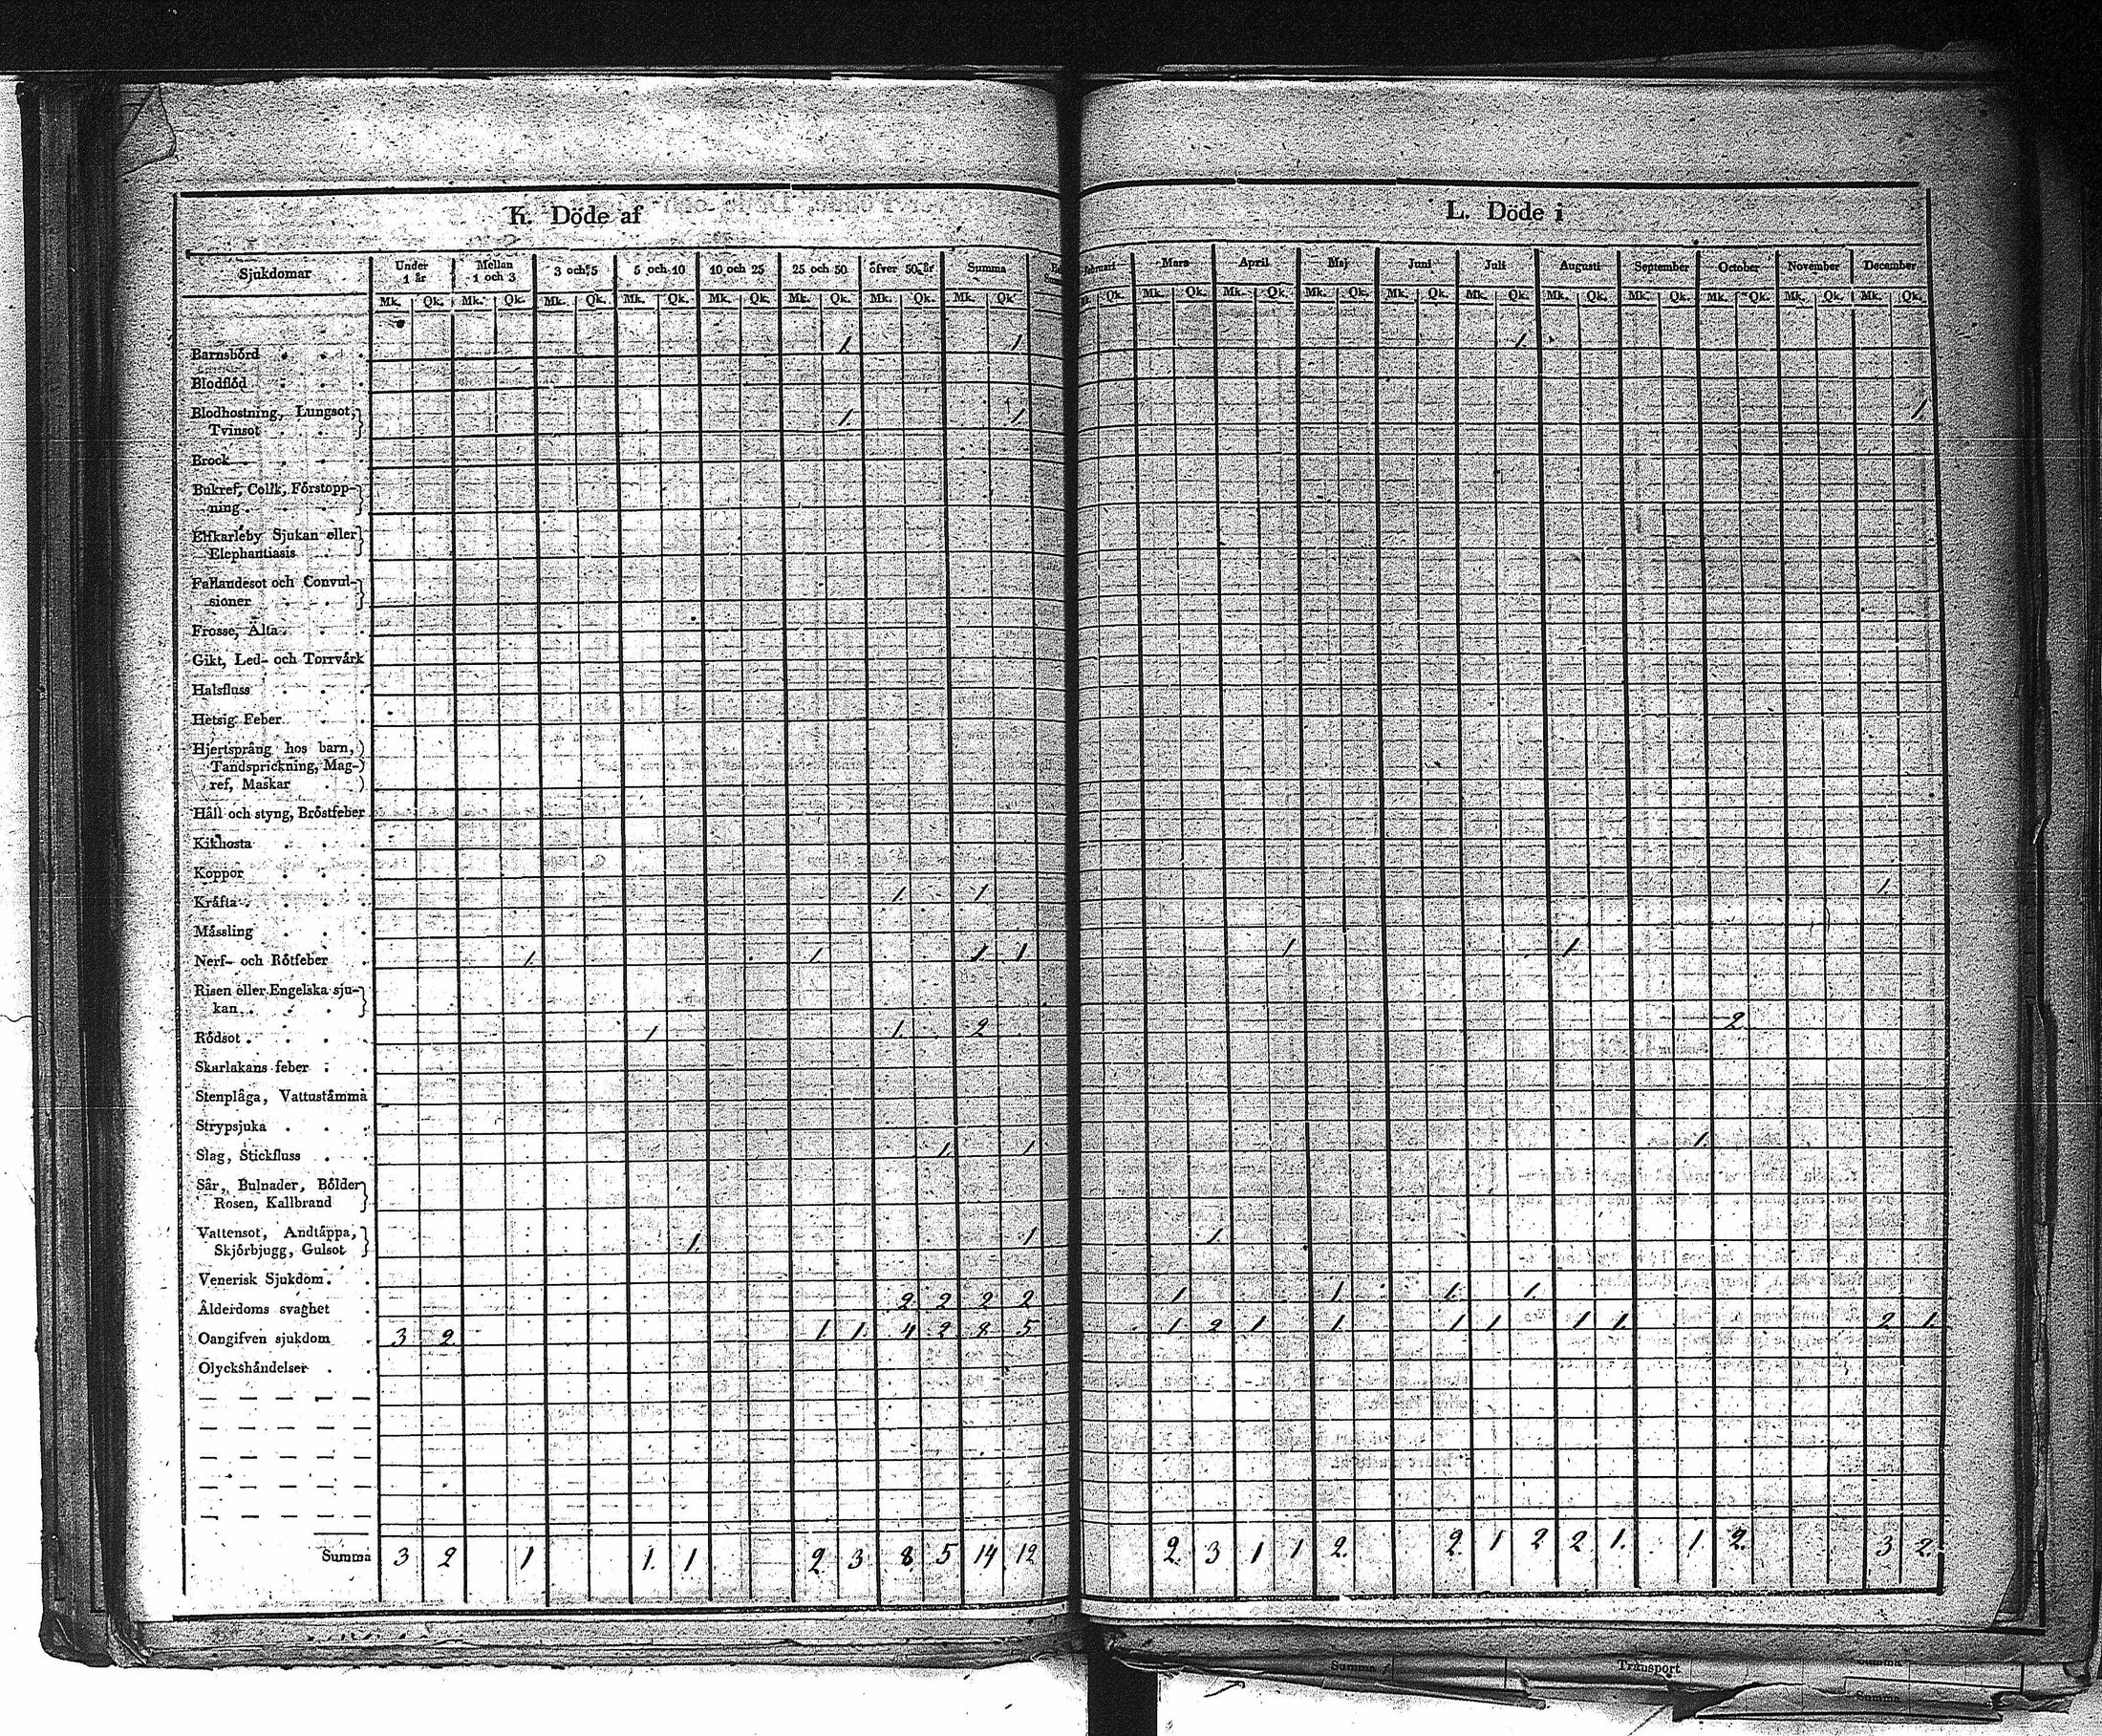 K. Döde af
Sjukdomar Under 1 år Mellan 1 och 3 3 och 5 5 och 10 10 och 25 25 och 50 öfver 50 år Summa
Mk. Qk. Mk. Qk. Mk. Qk. Mk. Qk. Mk. Qk. Mk. Qk. Mk. Qk. Mk. Qk.
Barnsbörd 1 1
Blodflöd
Blodhostning, Lungsot,
Tvinsot 1 1
Brock
Bukref, Colik, Förstopp-
ning
Elfkarleby Sjukan eller
Elephantiasis
Fallandesot och Convul-
sioner
Frosse, Älta
Gikt, Led- och Torrvärk
Halsfluss
Hetsig Feber
Hjertsprång hos barn,
Tandsprickning, Mag-
ref, Maskar
Håll och styng, Bröstfeber
Kikhosta
Koppor
Kräfta 1. 1
Mässling
Nerf- och Rötfeber 1. 1 1 1
Risen eller Engelska sju-
kan
Rödsot 1 1. 2
Skarlakans feber
Stenplåga, Vattustämma
Strypsjuka
Slag, Stickfluss 1. 1
Sår, Bulnader, Bölder
Rosen, Kallbrand
Vattensot, Andtäppa,
Skjörbjugg, Gulsot 1. 1
Venerisk Sjukdom
Ålderdoms svaghet 2 2 2 2
Oangifven sjukdom 3 2 1 1 4 2 8 5
Olyckshändelser
Summa 3 2 1 1. 1 2 3 8 5 14 12
L. Döde i
Mars April Maj Juni Juli Augusti September October November December
Qk. Mk. Qk. Mk. Qk. Mk. Qk. Mk. Qk. Mk. Qk. Mk. Qk. Mk. Qk. Mk. Qk. Mk. Qk. Mk. Qk.
1.
1.
1.
1 1
2
1.
1.
1 1 1. 1
1 2 1 1 1 1 1 1 2 1.
2. 3 1 1 2. 2. 1 2 2 1. 1. 2. 3 2.
Summa
Transport
Summa